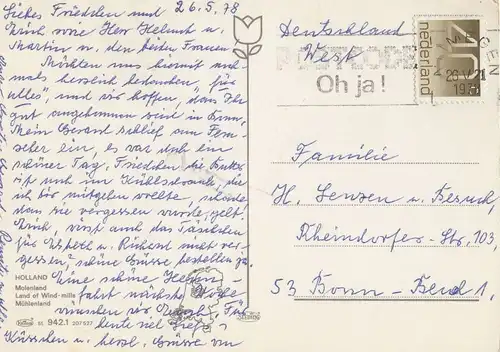 Liebes Friedchen und 26.5.78
Erich sowie Herr Helmut u.
Martin u. den beiden Frauen
Möchten uns hiermit noch
mals herzlich bedanken, für
alles", und wir hoffen, dass Ihr
gut angekommen seid in Bonn,
Mein Gerard schlief am Fern-
seher ein, es war doch ein
schöner Tag, Friedchen die Butter
ist noch im Kühlschrank, die
ich Dir mitgeben wollte, schade
dass sie vergessen wurde, gelt.
Erich, und auch das Täschchen
für Elsbeth u. Richard nicht ver-
gessen", schöne Grüsse bestellen ja.
Eine schöne Heim-
fahrt nächste Woche
wünschen wir Euch, Für
heute viel liebe
Küsschen u. herzl. Grüsse von
HOLLAND
Molenland
Land of Wind-mills
Mühlenland
st. 942.1 207527
Deutschland
West
POSTCODE
Oh ja!
NIJMEGEN
26.V.21
1978
nederland
Familie
H. Sensen u. Besuch,
Rheindorfer-Str, 103,
53 Bonn-Beuel 1,